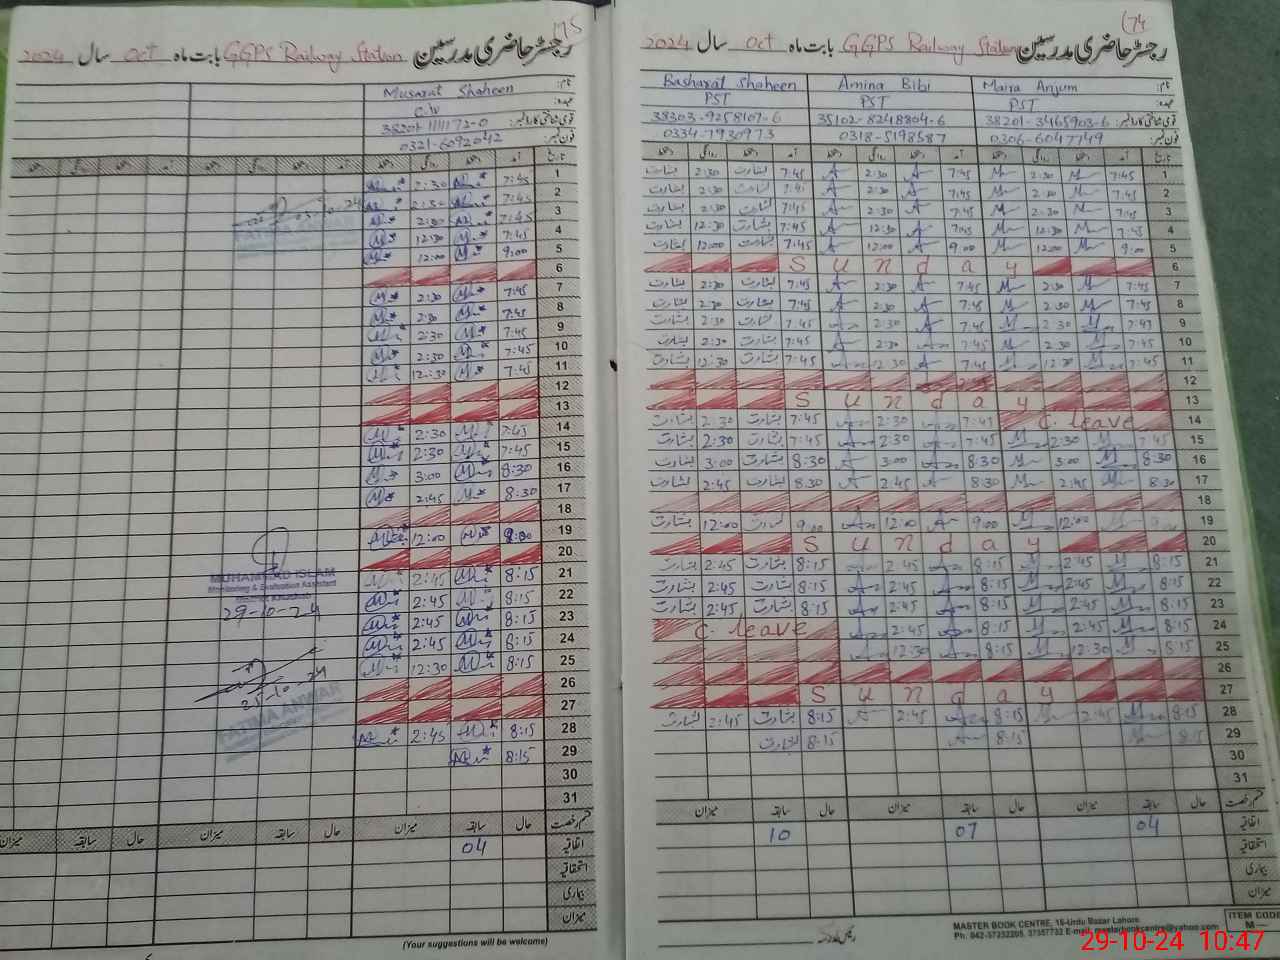 175
رجسٹر حاضری مدرسین GGPS Railway Station بابت ماہ Oct سال 2024
نام: Musarat Shaheen
عہدہ:
قومی شناختی کارڈ نمبر: 38201-1111172-0
فون نمبر: 0321-6092042
تاریخ آمد دستخط روانگی دستخط
1 7:45 2:30
2 7:45 2:30
3 7:45 2:30
4 7:45 12:30
5 9:00 12:00
6
7 7:45 2:30
8 7:45 2:30
9 7:45 2:30
10 7:45 2:30
11 7:45 12:30
12
13
14 7:45 2:30
15 7:45 2:30
16 8:30 3:00
17 8:30 2:45
18
19 9:00 12:00
20
21 8:15 2:45
22 8:15 2:45
23 8:15 2:45
24 8:15 2:45
25 8:15 12:30
26
27
28 8:15 2:45
29 8:15
30
31
قسم رخصت حال سابقہ میزان حال سابقہ میزان حال سابقہ میزان
اتفاقیہ 04
استحقاقیہ
بیماری
میزان
(Your suggestions will be welcome)
FATIMA ANWAR
MUHAMMAD ISLAM
Monitoring & Evaluation Assistant
29-10-24
25-10-24
FATIMA ANWAR
174
رجسٹر حاضری مدرسین GGPS Railway Station بابت ماہ Oct سال 2024
نام: Maira Anjum Amina Bibi Basharat Shaheen
عہدہ: PST PST PST
قومی شناختی کارڈ نمبر: 38201-3465903-6 35102-8248804-6 38303-9258107-6
فون نمبر: 0306-6047749 0318-5198587 0334-7930973
تاریخ آمد دستخط روانگی دستخط آمد دستخط روانگی دستخط آمد دستخط روانگی دستخط
1 7:45 2:30 7:45 2:30 7:45 بشارت 2:30 بشارت
2 7:45 2:30 7:45 2:30 7:45 بشارت 2:30 بشارت
3 7:45 2:30 7:45 2:30 7:45 بشارت 2:30 بشارت
4 7:45 12:30 7:45 12:30 7:45 بشارت 12:30 بشارت
5 9:00 12:00 9:00 12:00 7:45 بشارت 12:00 بشارت
6 Sunday
7 7:45 2:30 7:45 2:30 7:45 بشارت 2:30 بشارت
8 7:45 2:30 7:45 2:30 7:45 بشارت 2:30 بشارت
9 7:45 2:30 7:45 2:30 7:45 بشارت 2:30 بشارت
10 7:45 2:30 7:45 2:30 7:45 بشارت 2:30 بشارت
11 7:45 12:30 7:45 12:30 7:45 بشارت 12:30 بشارت
12
13 Sunday
14 C. leave 7:45 2:30 7:45 بشارت 2:30 بشارت
15 7:45 2:30 7:45 2:30 7:45 بشارت 2:30 بشارت
16 8:30 3:00 8:30 3:00 8:30 بشارت 3:00 بشارت
17 8:30 2:45 8:30 2:45 8:30 بشارت 2:45 بشارت
18
19 12:00 9:00 12:00 9:00 بشارت 12:00 بشارت
20 Sunday
21 8:15 2:45 8:15 2:45 8:15 بشارت 2:45 بشارت
22 8:15 2:45 8:15 2:45 8:15 بشارت 2:45 بشارت
23 8:15 2:45 8:15 2:45 8:15 بشارت 2:45 بشارت
24 8:15 2:45 8:15 2:45 C. leave
25 8:15 12:30 8:15 12:30
26
27 Sunday
28 8:15 2:45 8:15 2:45 8:15 بشارت 2:45 بشارت
29 8:15 8:15 8:15 بشارت
30
31
قسم رخصت حال سابقہ میزان حال سابقہ میزان حال سابقہ میزان
اتفاقیہ 04 07 10
استحقاقیہ
بیماری
میزان
MASTER BOOK CENTRE, 16-Urdu Bazar Lahore
Ph. 042-37232205, 37357732 E-mail: masterbookcentre@yahoo.com
ITEM CODE
M—
29-10-24 10:47